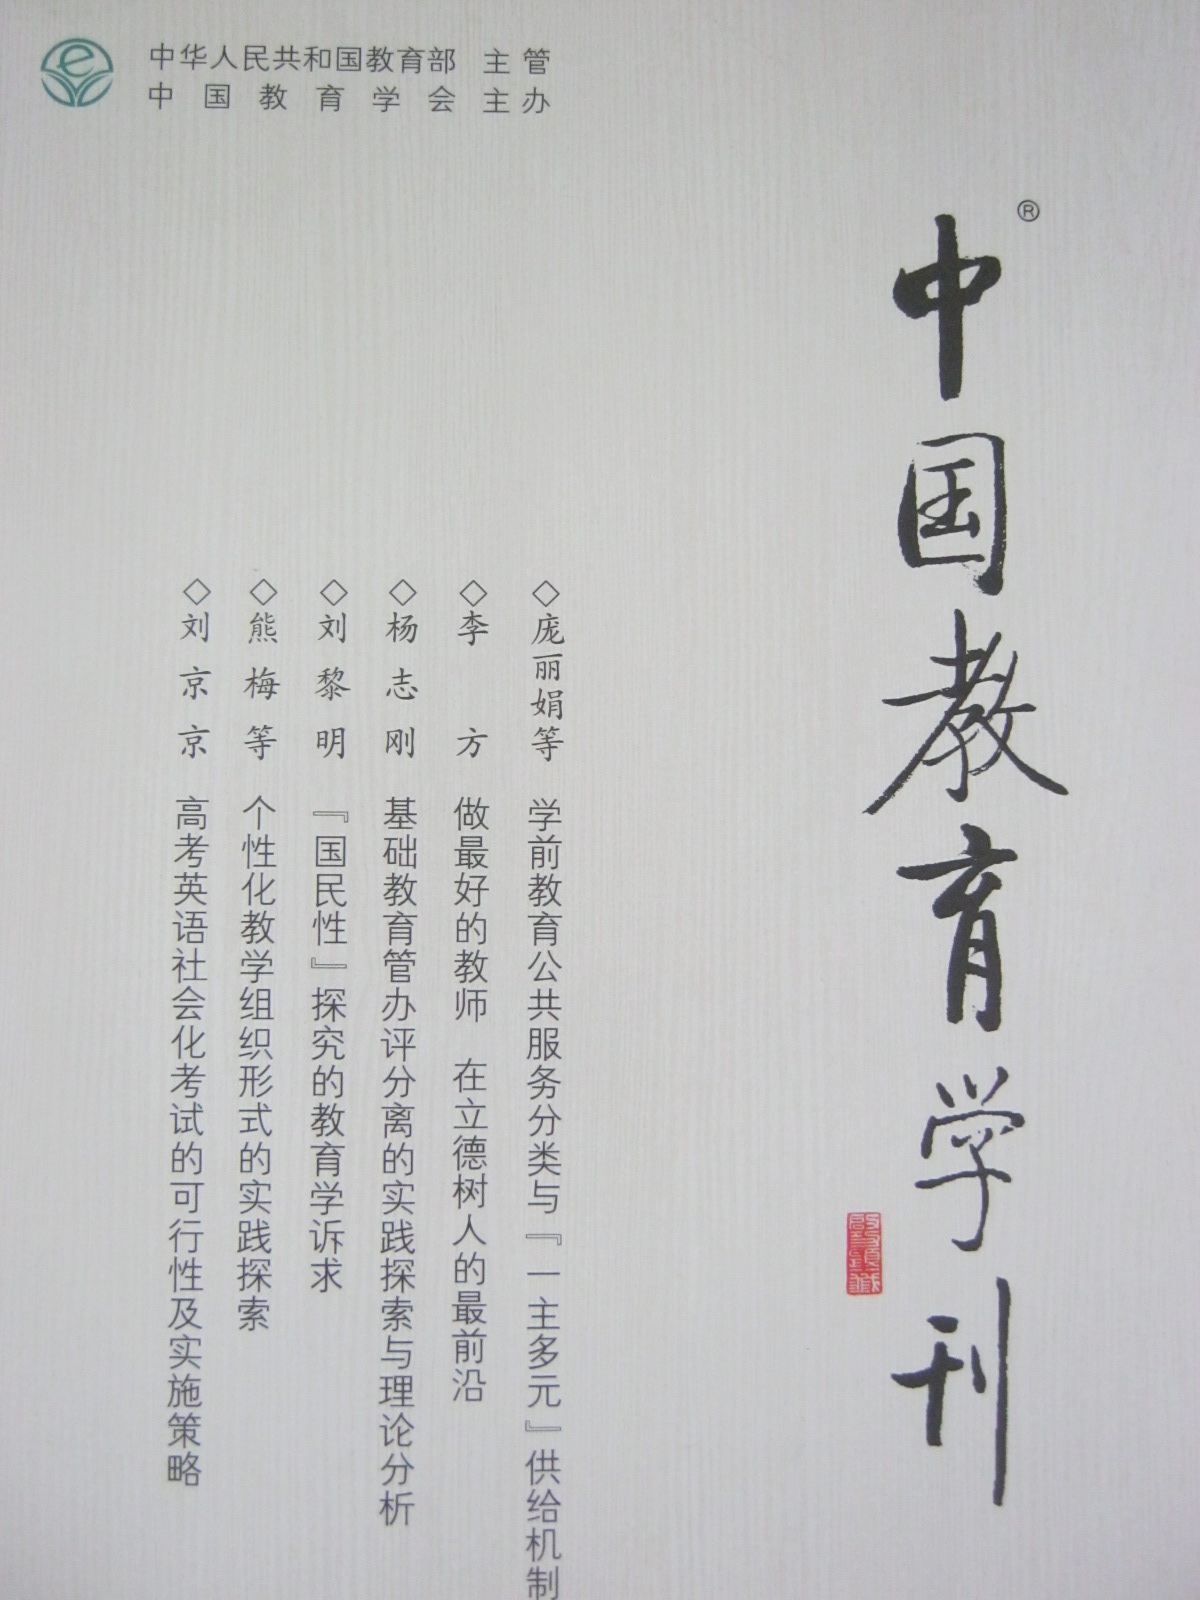 中华人民共和国教育部 主管
中国教育学会主办
®
中国教育学刊
◇庞丽娟等 学前教育公共服务分类与『一主多元』供给机制
◇李方 做最好的教师 在立德树人的最前沿
◇杨志刚 基础教育管办评分离的实践探索与理论分析
◇刘黎明 『国民性』探究的教育学诉求
◇熊梅等 个性化教学组织形式的实践探索
◇刘京京 高考英语社会化考试的可行性及实施策略